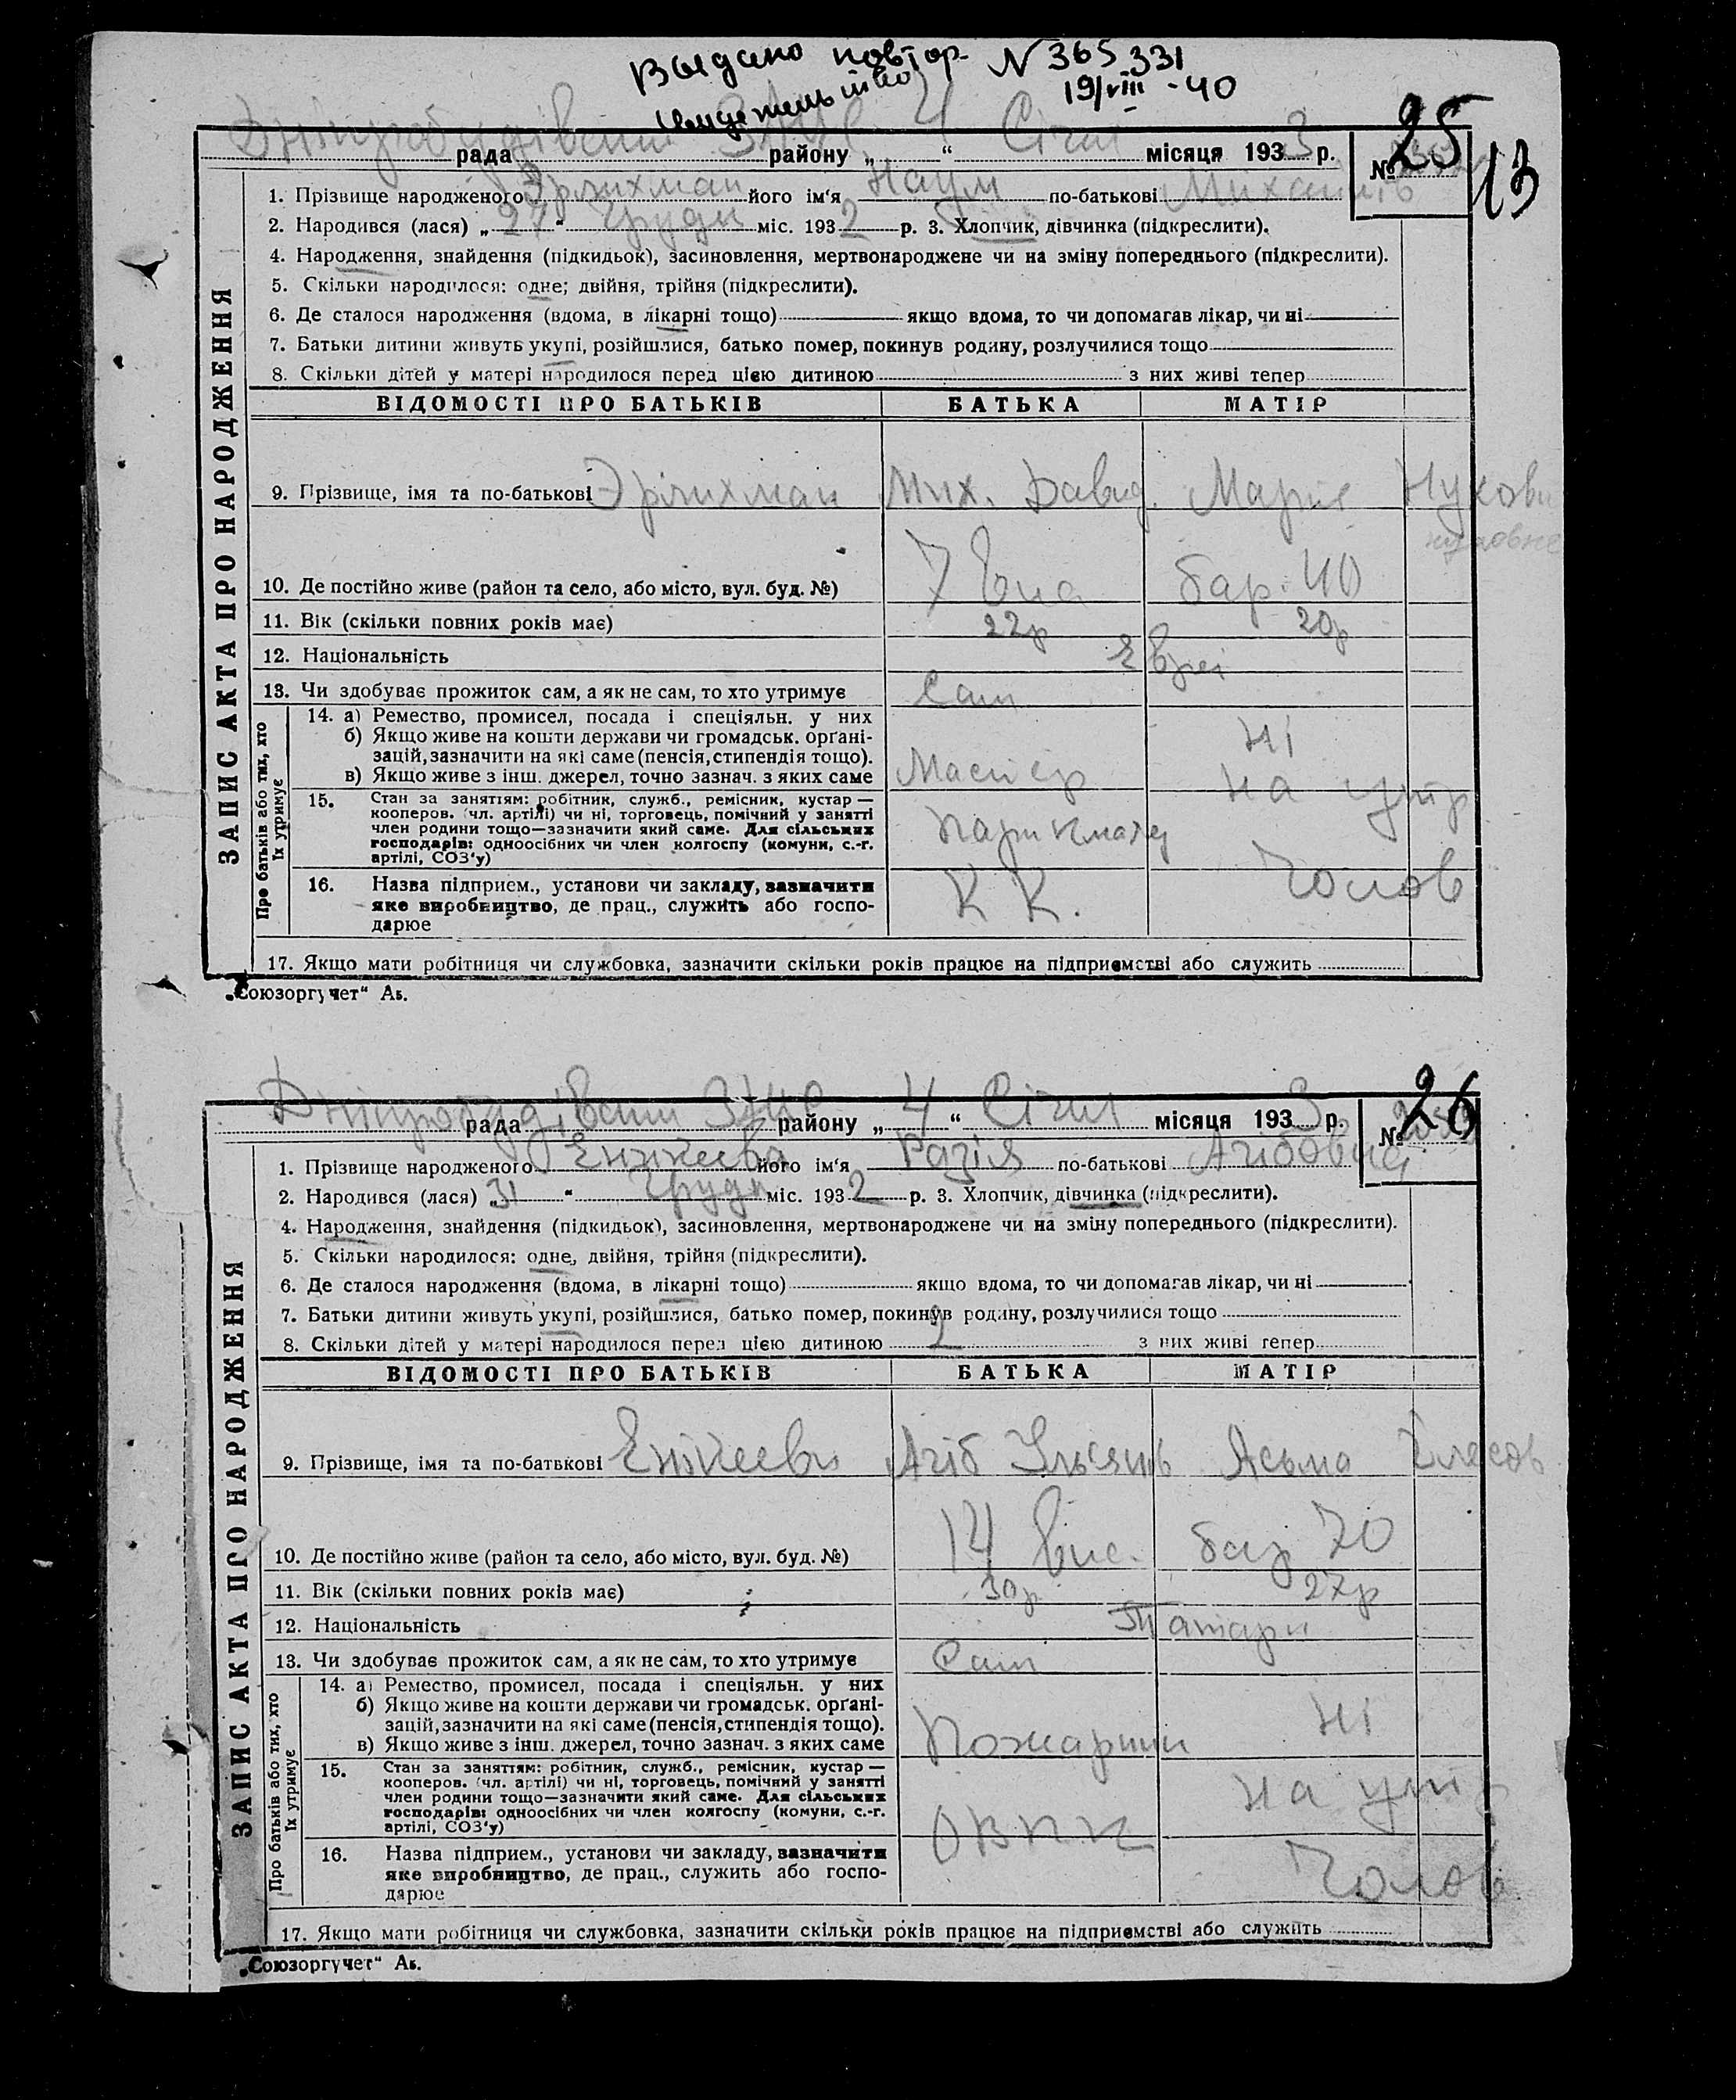 Выдано повтор. N 365331
19/VIII - 40
4 Січня
рада району „ “ місяця 1933 р. № 25
13
1. Прізвище народженого Эрлихман його ім‘я Наум по-батькові Михайлів
2. Народився (лася) „ 27 “ Грудн міс. 1932 р. 3. Хлопчик, дівчинка (підкреслити).
4. Народження, знайдення (підкидьок), засиновлення, мертвонароджене чи на зміну попереднього (підкреслити).
5. Скільки народилося: одне; двійня, трійня (підкреслити).
6. Де сталося народження (вдома, в лікарні тощо) якщо вдома, то чи допомагав лікар, чи ні
7. Батьки дитини живуть укупі, розійшлися, батько помер, покинув родину, розлучилися тощо
8. Скільки дітей у матері народилося перед цією дитиною з них живі тепер
ЗАПИС АКТА ПРО НАРОДЖЕННЯ
ВІДОМОСТІ ПРО БАТЬКІВ БАТЬКА МАТІР
9. Прізвище, імя та по-батькові Эрлихман Мих. Давид. Марія
10. Де постійно живе (район та село, або місто, вул. буд. №) 7 бар. 40
11. Вік (скільки повних років має) 22р 20р
12. Національність Євреі
13. Чи здобуває прожиток сам, а як не сам, то хто утримує Сам
Про батьків або тих, хто їх утримує
14. а) Ремество, промисел, посада і спеціяльн. у них
б) Якщо живе на кошти держави чи громадськ. орґані-
зацій, зазначити на які саме (пенсія, стипендія тощо). Ні
в) Якщо живе з інш. джерел, точно зазнач. з яких саме Мастер на утр
15. Стан за заняттям: робітник, служб., ремісник, кустар —
кооперов. (чл. артілі) чи ні, торговець, помічний у занятті
член родини тощо—зазначити який саме. Для сільських
господарів: одноосібних чи член колгоспу (комуни, с.-г.
артілі, СОЗ‘у)
16. Назва підприєм., установи чи закладу, зазначити К К. Чолов
яке виробництво, де прац., служить або госпо-
дарює
17. Якщо мати робітниця чи службовка, зазначити скільки років працює на підприємстві або служить
„Союзоргучет“ Аб.
4 Січня
рада району „ “ місяця 1933 р. № 26
1. Прізвище народженого Енікеєва його ім‘я Разія по-батькові Агібовна
2. Народився (лася) „ 31 “ Грудн міс. 1932 р. 3. Хлопчик, дівчинка (підкреслити).
4. Народження, знайдення (підкидьок), засиновлення, мертвонароджене чи на зміну попереднього (підкреслити).
5. Скільки народилося: одне, двійня, трійня (підкреслити).
6. Де сталося народження (вдома, в лікарні тощо) якщо вдома, то чи допомагав лікар, чи ні
7. Батьки дитини живуть укупі, розійшлися, батько помер, покинув родину, розлучилися тощо
8. Скільки дітей у матері народилося перед цією дитиною 2 з них живі тепер
ЗАПИС АКТА ПРО НАРОДЖЕННЯ
ВІДОМОСТІ ПРО БАТЬКІВ БАТЬКА МАТІР
9. Прізвище, імя та по-батькові Енікеєви Агіб Асьма
10. Де постійно живе (район та село, або місто, вул. буд. №) 14 вис. 70
11. Вік (скільки повних років має) 30р 27р
12. Національність Татари
13. Чи здобуває прожиток сам, а як не сам, то хто утримує Сам
Про батьків або тих, хто їх утримує
14. а) Ремество, промисел, посада і спеціяльн. у них
б) Якщо живе на кошти держави чи громадськ. орґані-
зацій, зазначити на які саме (пенсія, стипендія тощо). Ні
в) Якщо живе з інш. джерел, точно зазнач. з яких саме Пожарник
15. Стан за заняттям: робітник, служб., ремісник, кустар — на утр
кооперов. (чл. артілі) чи ні, торговець, помічний у занятті
член родини тощо—зазначити який саме. Для сільських
господарів: одноосібних чи член колгоспу (комуни, с.-г.
артілі, СОЗ‘у)
16. Назва підприєм., установи чи закладу, зазначити Чолов
яке виробництво, де прац., служить або госпо-
дарює
17. Якщо мати робітниця чи службовка, зазначити скільки років працює на підприємстві або служить
„Союзоргучет“ Аб.